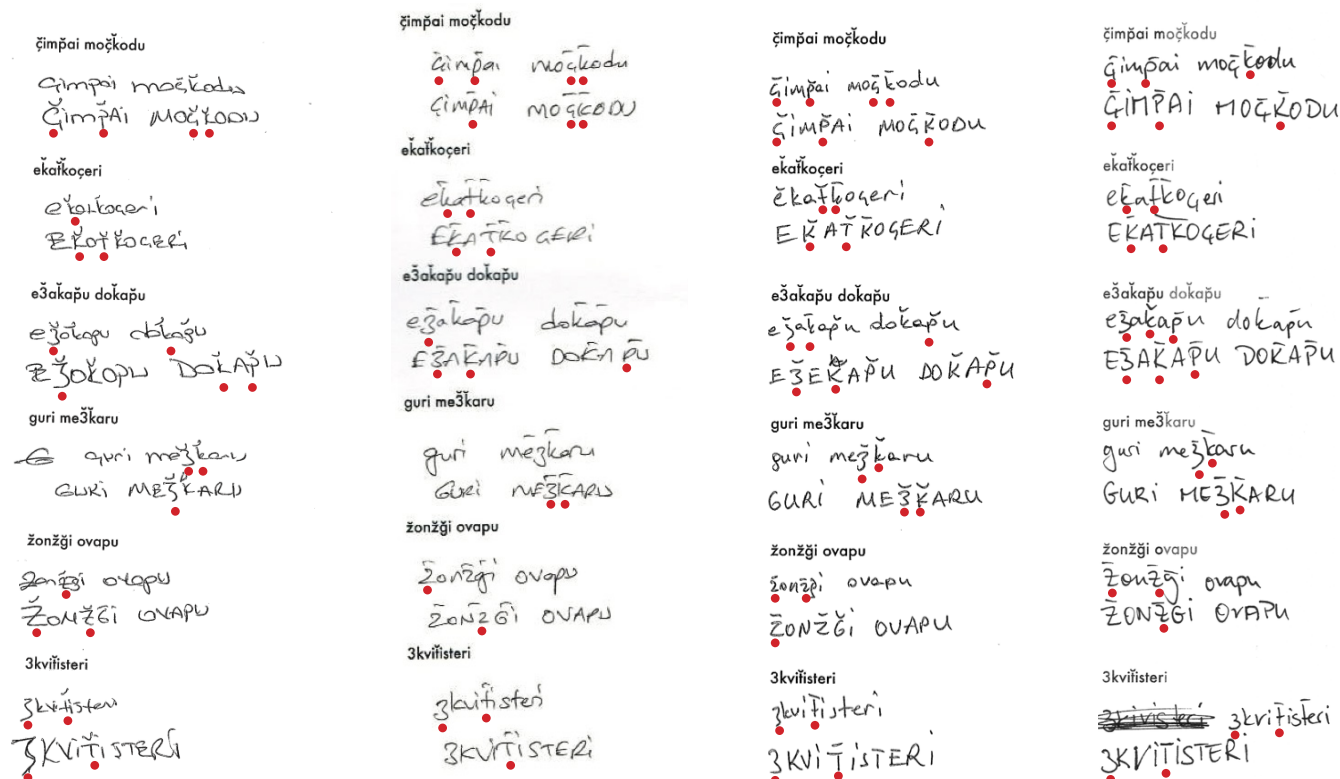 ç̌imp̌ai moç̌ǩodu
çimpai moç̄ǩodu
Ç̌İMP̌Aİ MOÇ̌ǨODU
eǩat̆ǩoçeri
eǩatkoçeri
EǨOT̆ǨOÇERİ
eǯaǩap̌u doǩap̌u
eǯoǩapu doǩap̌u
EǮOǨOPU DOǨAP̌U
guri meǯǩaru
guri meǯǩaru
GURİ MEǮǨARU
žonžği ovapu
žonžği ovapu
ŽONŽĞİ OVAPU
3kvit̆isteri
3kvit̆isteri
3KVİT̆İSTERİ
ç̌imp̌ai moç̌ǩodu
ç̄imp̄ai moç̄k̄odu
ÇİMP̄Aİ MOÇ̄K̄ODU
eǩat̆ǩoçeri
ek̄at̄k̄oçeri
EK̄AT̄K̄OÇERİ
eǯaǩap̌u doǩap̌u
e3̄ak̄ap̄u dok̄ap̄u
E3̄AK̄AP̄U DOK̄AP̄U
guri meǯǩaru
guri me3̄k̄aru
GURİ ME3̄K̄ARU
žonžği ovapu
z̄onz̄ḡi ovapu
Z̄ONZ̄Ḡİ OVAPU
3kvit̆isteri
3kvit̄isteri
3KVİT̄İSTERİ
ç̌imp̌ai moç̌ǩodu
ç̄imp̄ai moç̄k̄odu
Ç̄İMP̌Aİ MOÇ̄K̄ODU
eǩat̆ǩoçeri
ěkat̆ǩoçeri
EǨAT̆K̄OÇERİ
eǯaǩap̌u doǩap̌u
eǯaǩap̌u doǩap̌u
EǮEǨAP̌U DOKAP̌U
guri meǯǩaru
guri meǯǩaru
GURİ MEǮǨARU
žonžği ovapu
z̄onz̄ḡi ovapu
Z̄ONZ̄Ğİ OVAPU
3kvit̆isteri
3kvit̄isteri
3KVİT̄İSTERİ
ç̌imp̌ai moç̌ǩodu
ç̄imp̄ai moç̄k̄odu
Ç̄İMP̄Aİ MOÇ̄K̄ODU
eǩat̆ǩoçeri
ek̄at̄k̄oçeri
EK̄AT̄KOÇERİ
eǯaǩap̌u doǩap̌u
e3̄ak̄ap̄u dok̄ap̄u
E3̄AK̄AP̄U DOK̄AP̄U
guri meǯǩaru
guri me3̄k̄aru
GURİ ME3̄K̄ARU
žonžği ovapu
z̄onz̄ḡi ovapu
Z̄ONZ̄Ḡİ OVAPU
3kvit̆isteri
3kvit̄isteri
3KVİT̄İSTERİ